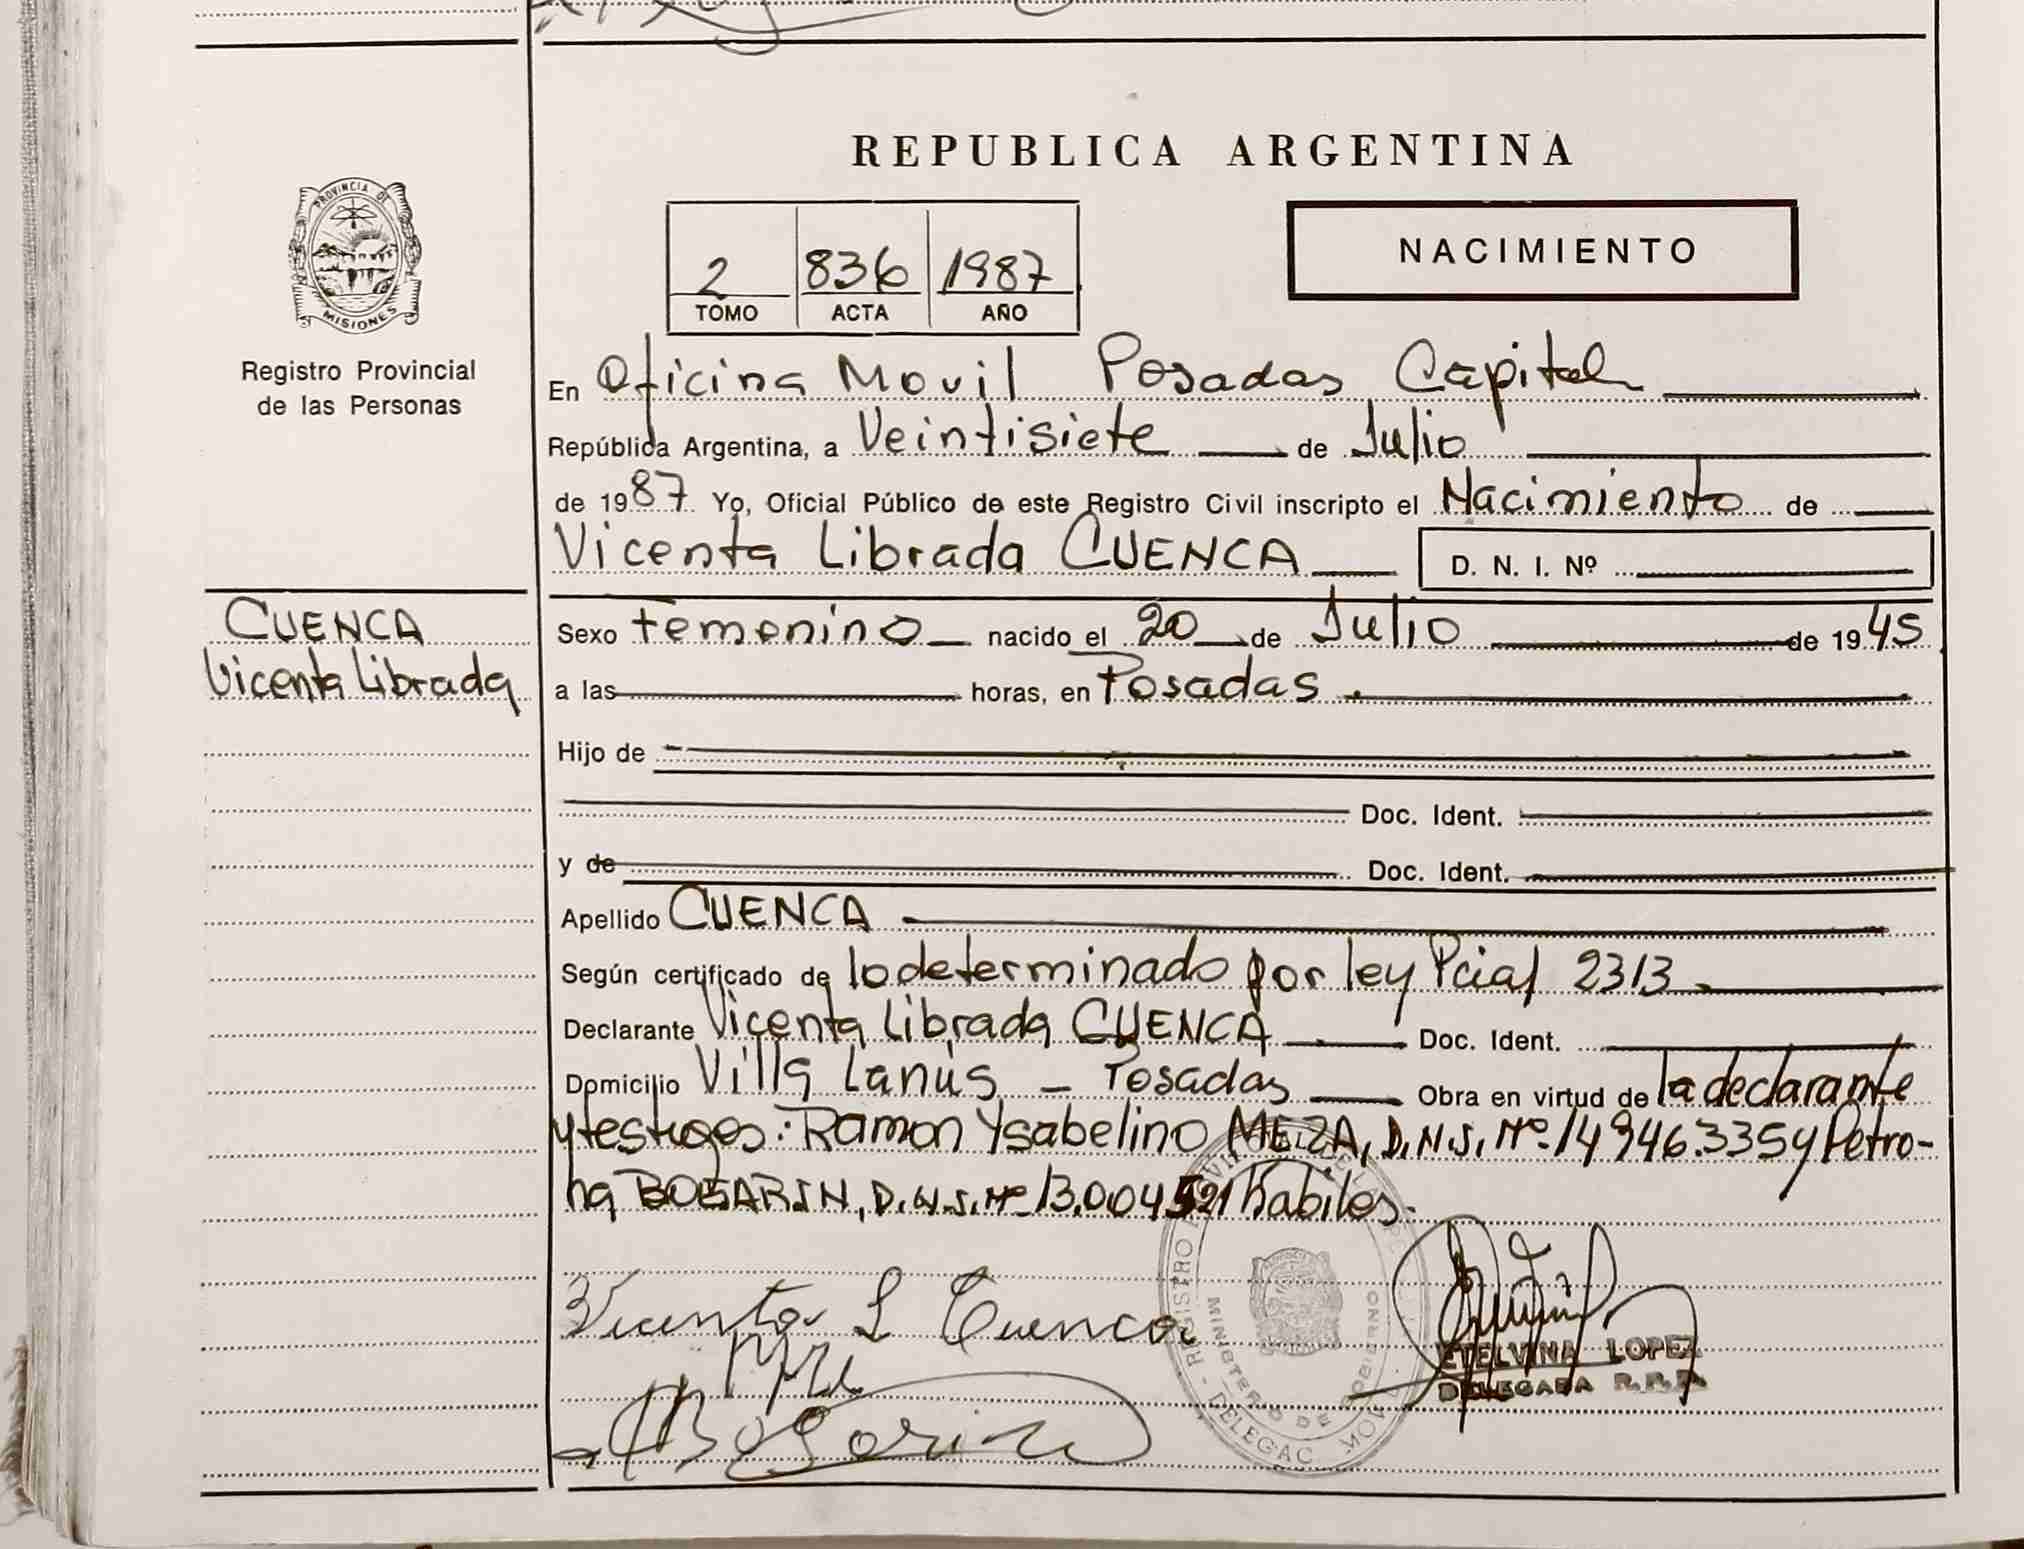 REPUBLICA ARGENTINA
PROVINCIA DE
MISIONES
Registro Provincial
de las Personas
2 836 1987
TOMO ACTA AÑO
NACIMIENTO
En Oficina Movil Posadas Capital
República Argentina, a Veintisiete de Julio
de 1987 Yo, Oficial Público de este Registro Civil inscripto el Nacimiento de
Vicenta Librada CUENCA D. N. I. Nº
CUENCA
Vicenta Librada
Sexo femenino nacido el 20 de Julio de 1945
a las horas, en Posadas.
Hijo de
Doc. Ident.
y de Doc. Ident.
Apellido CUENCA
Según certificado de lo determinado por ley Pcial 2313.
Declarante Vicenta Librada CUENCA Doc. Ident.
Domicilio Villa Lanús - Posadas Obra en virtud de la declarante
y testigos: Ramon Ysabelino MEZA, D.N.I. Nº 14946.335 y Petro-
na BOGARIN, D.N.I. Nº 13.004521 habiles.
Vicenta L Cuenca
Bogarin
REGISTRO
MINISTERIO DE GOBIERNO
DELEGAC. MOVIL
ETELVINA LOPEZ
DELEGADA R.P.P.